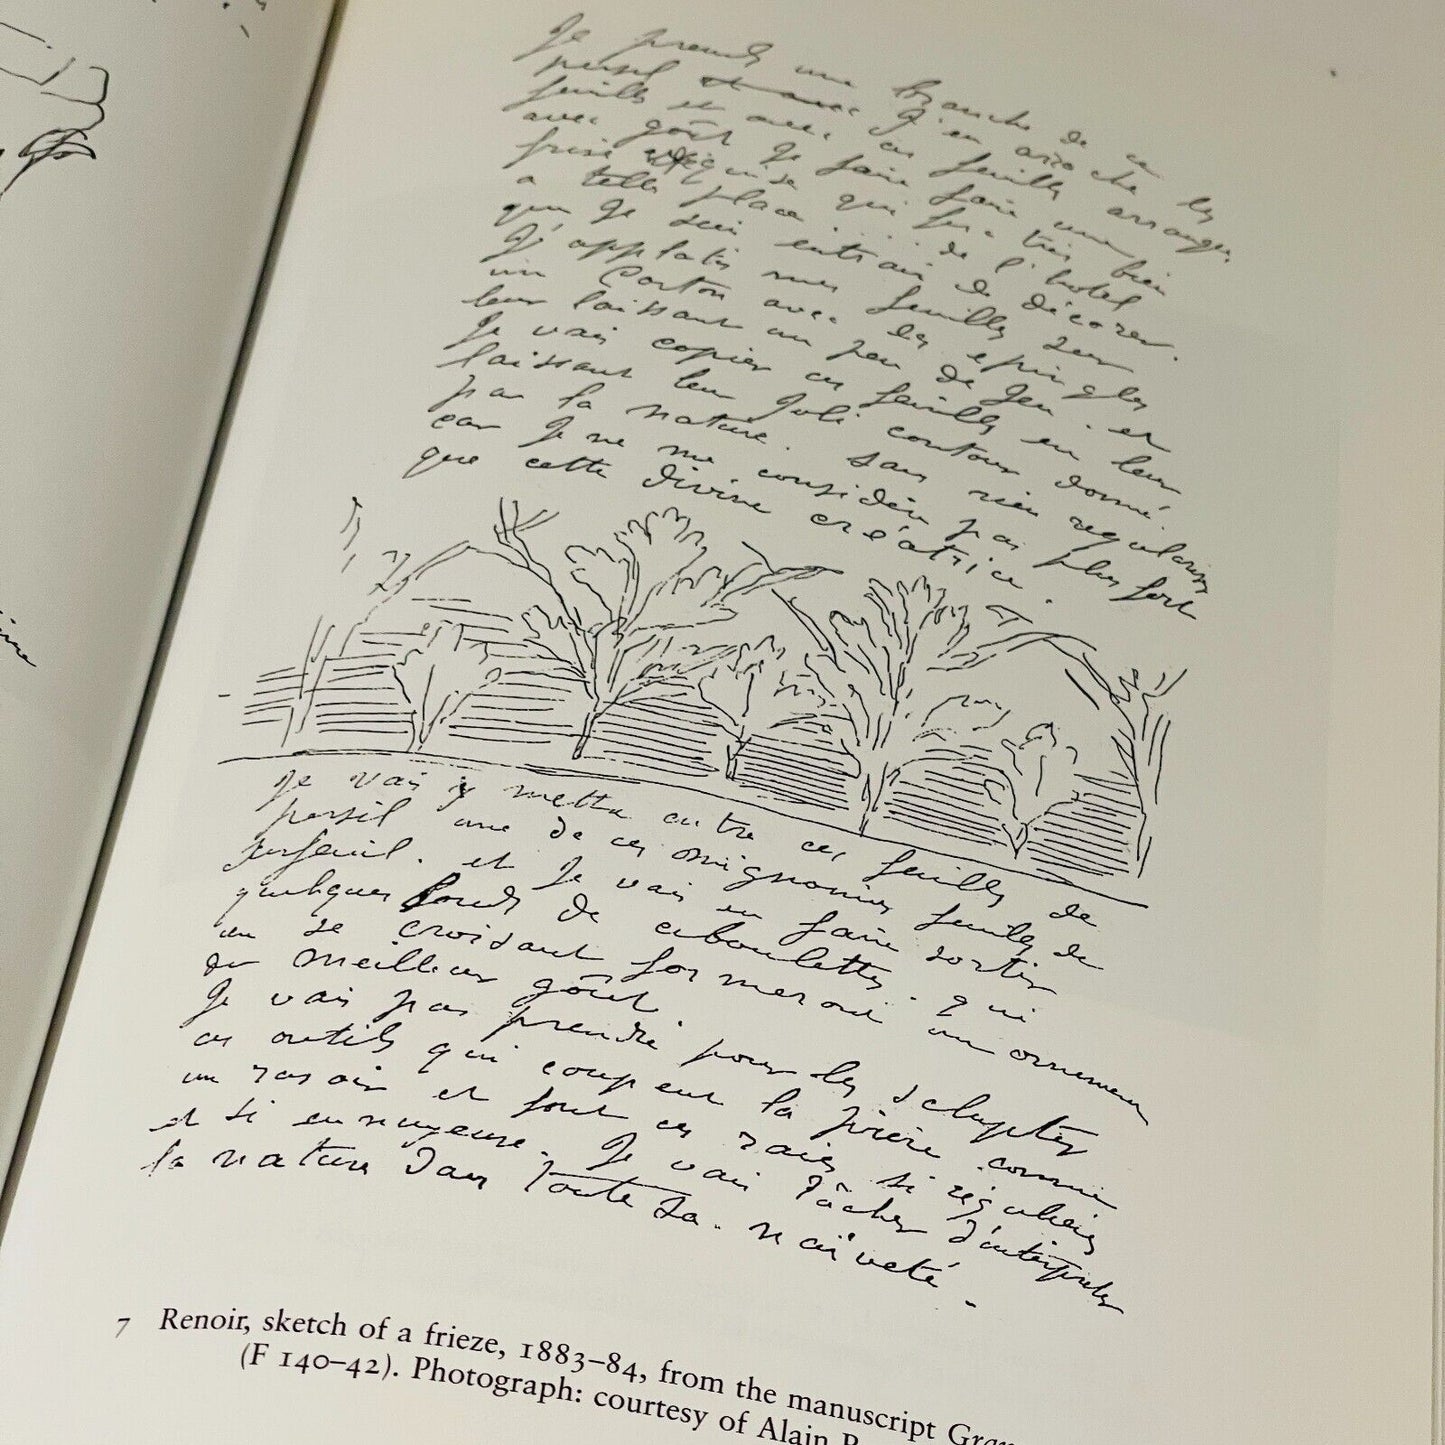 Je prends une branche de ce
persil et avec j'en arrache les
feuilles et avec ces feuilles arrangées
avec goût je fais faire une
frise exquise qui fera très bien
a telle place de l'hotel
que je suis entrain de décorer.
J'applatis mes feuilles sur
un Carton avec des épingles
leur laissant un peu de jeu. et
je vais copier ces feuilles en leur
laissant leur joli contour donné
par la nature. sans rien regulariser
car je ne me considère pas plus fort
que cette divine créatrice.
Je vais y mettre entre ces feuilles de
persil une de ces mignonnes feuilles de
cerfeuil. et je vais en faire sortir
quelques bouts de ciboulettes. qui
en se croisant formeront un ornement
du meilleur goût.
Je vais pas prendre pour les sculpter
ces outils qui coupent la pierre comme
un rasoir et font ces raies si régulières
et si ennuyeuse. Je vais tâcher d'interpréter
la nature dans toute sa naïveté.
7 Renoir, sketch of a frieze, 1883–84, from the manuscript
(F 140–42). Photograph: courtesy of Alain